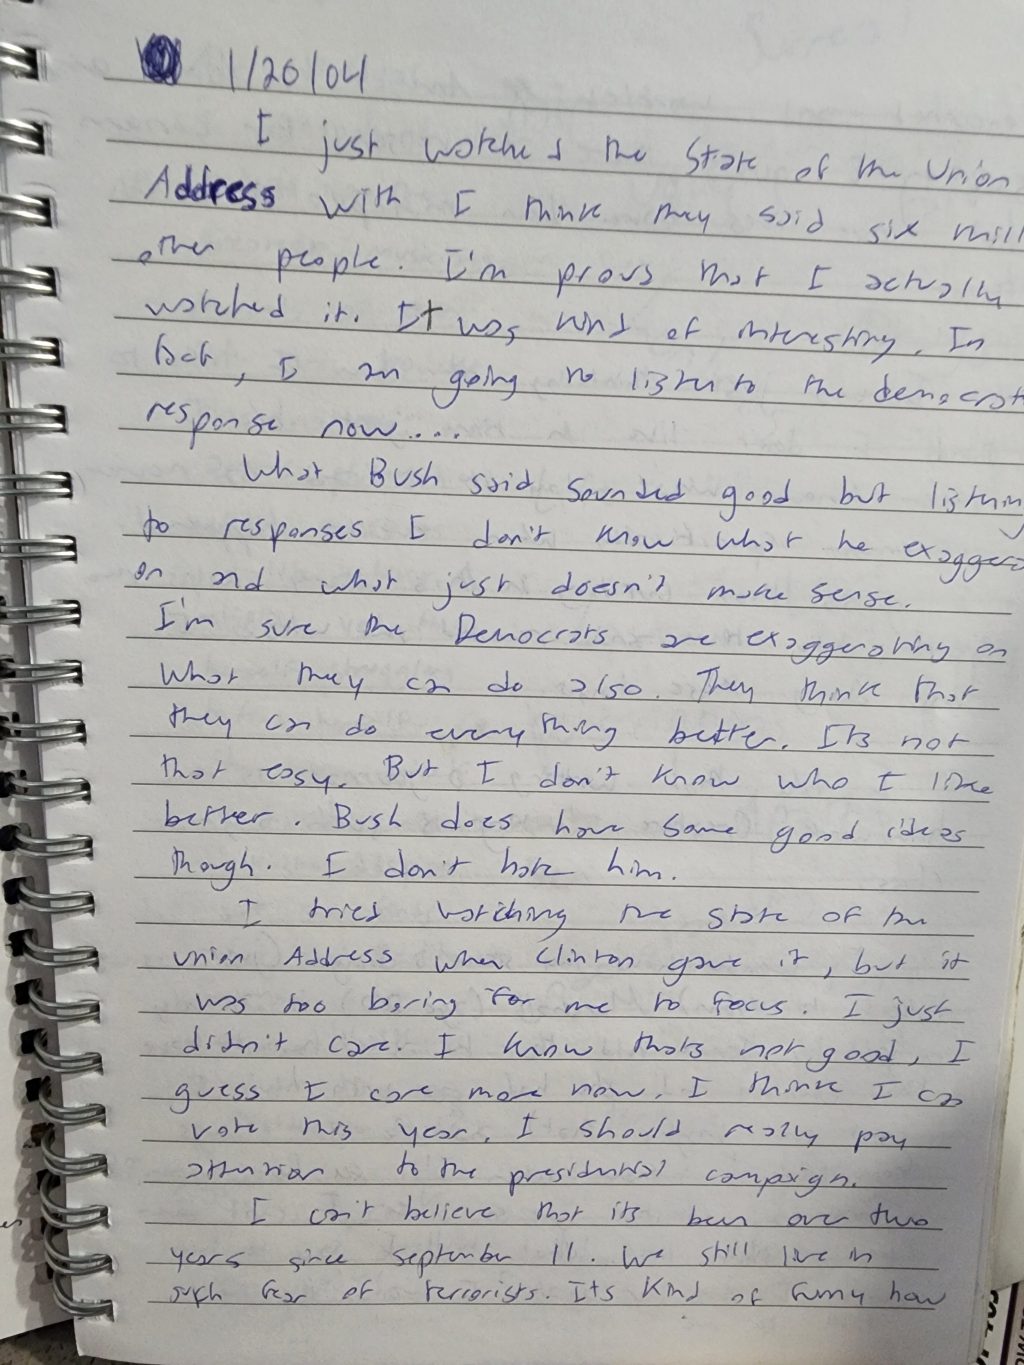 1/20/04
I just watched the State of the Union
Address with I think they said six mill
other people. I'm proud that I actually
watched it. It was kind of interesting. In
fact, I am going to listen to the democrat
response now....
What Bush said sounded good but listening
to responses I don't know what he exaggera
on and what just doesn't make sense.
I'm sure the Democrats are exaggerating on
what they can do also. They think that
they can do everything better. Its not
that easy. But I don't know who I like
better. Bush does have some good ideas
though. I don't hate him.
I tried watching the state of the
union Address when Clinton gave it, but it
was too boring for me to focus. I just
didn't care. I know thats not good, I
guess I care more now. I think I can
vote this year. I should really pay
attention to the presidential campaign.
I can't believe that its been over two
years since september 11. We still live in
such fear of terrorists. Its kind of funny how